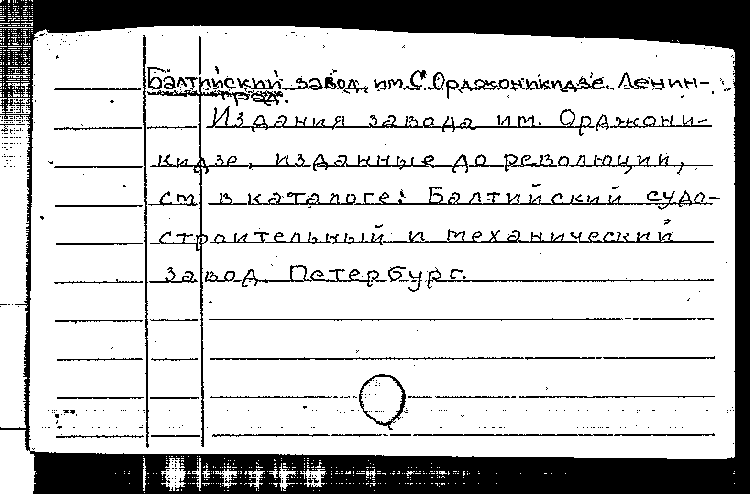 Балтийский завод им. С. Орджоникидзе. Ленин-
град.
Издания завода им. Орджони-
кидзе, изданные до революции,
см в каталоге: Балтийский судо-
строительный и механический
завод. Петербург.